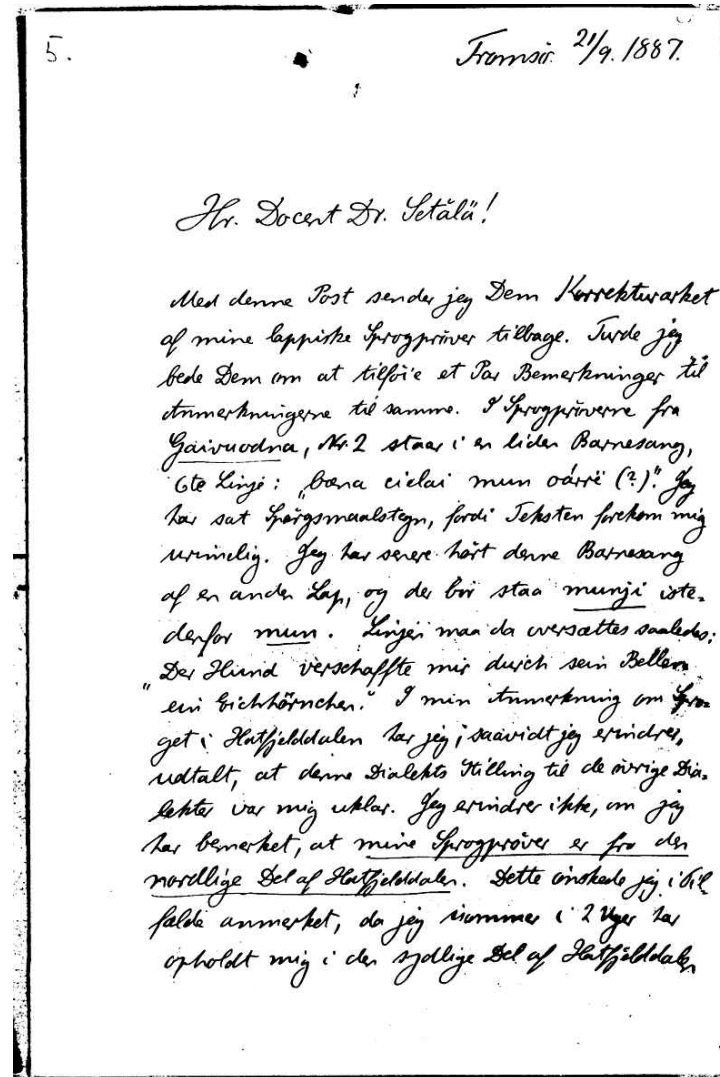 5.
Tromsö. 21/9. 1887.
Hr. Docent Dr. Setälä!
Med denne Post sender jeg Dem Korrekturarket
af mine lappiske Sprogpröver tilbage. Turde jeg
bede Dem om at tilföie et Par Bemerkninger til
Anmerkningerne til samme. I Sprogpröverne fra
Gaivuodna, Nr. 2 staar i en liden Barnesang,
6te Linje: „bæna cielai mun oárrë (?)". Jeg
har sat Spörgsmaalstegn, fordi Teksten forekom mig
urimelig. Jeg har senere hört denne Barnesang
af en anden Lap, og der bör staa munji iste-
denfor mun. Linjen maa da oversættes saaledes:
„Der Hund verschaffte mir durch sein Bellen
ein Eichhörnchen." I min Anmerkning om Spro-
get i Hatfjelddalen har jeg, saavidt jeg erindrer,
udtalt, at denne Dialekts Stilling til de övrige Dia-
lekter var mig uklar. Jeg erindrer ikke, om jeg
har bemerket, at mine Sprogpröver er fra den
nordlige Del af Hatfjelddalen. Dette önskede jeg i Til-
fælde anmerket, da jeg isommer i 2 Uger har
opholdt mig i den sydlige Del af Hatfjelddalen